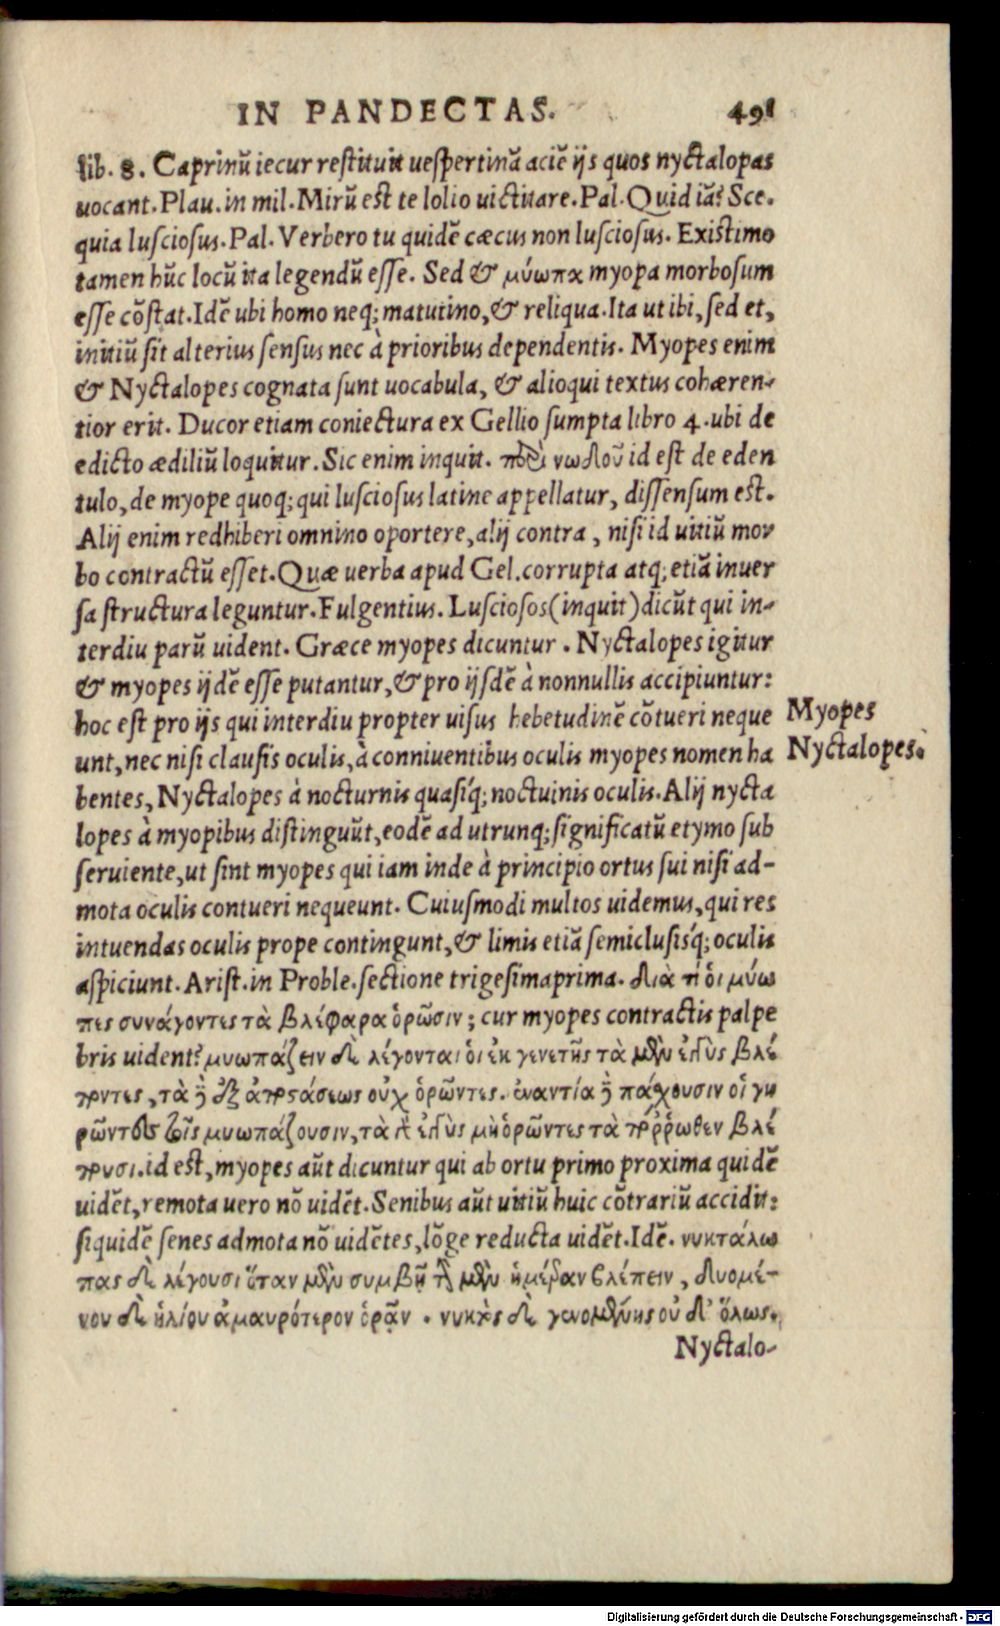 IN PANDECTAS. 491
lib. 8. Caprinū iecur restituit uespertinā aciē ijs quos nyctalopas
uocant. Plau. in mil. Mirū est te lolio uictitare. Pal. Quid iā? Sce.
quia lusciosus. Pal. Verbero tu quidē cæcus non lusciosus. Existimo
tamen hūc locū ita legendū esse. Sed & μύωπα myopa morbosum
esse cōstat. Idē ubi homo neq; matutino, & reliqua. Ita ut ibi, sed et,
initiū sit alterius sensus nec à prioribus dependentis. Myopes enim
& Nyctalopes cognata sunt uocabula, & alioqui textus cohæren-
tior erit. Ducor etiam coniectura ex Gellio sumpta libro 4. ubi de
edicto ædiliū loquitur. Sic enim inquit. περὶ νωδοῦ id est de eden
tulo, de myope quoq; qui lusciosus latine appellatur, dissensum est.
Alij enim redhiberi omnino oportere, alij contra, nisi id uitiū mor
bo contractū esset. Quæ uerba apud Gel. corrupta atq; etiā inuer
sa structura leguntur. Fulgentius. Lusciosos (inquit) dicūt qui in-
terdiu parū uident. Græce myopes dicuntur. Nyctalopes igitur
& myopes ijdē esse putantur, & pro ijsdē à nonnullis accipiuntur:
hoc est pro ijs qui interdiu propter uisus hebetudinē cōtueri neque
unt, nec nisi clausis oculis, à conniuentibus oculis myopes nomen ha
bentes, Nyctalopes à nocturnis quasíq; noctuinis oculis. Alij nycta
lopes à myopibus distinguūt, eodē ad utrunq; significatū etymo sub
seruiente, ut sint myopes qui iam inde à principio ortus sui nisi ad-
mota oculis contueri nequeunt. Cuiusmodi multos uidemus, qui res
intuendas oculis prope contingunt, & limis etiā semiclusisq́; oculis
aspiciunt. Arist. in Proble. sectione trigesimaprima. Διὰ τί οἱ μύω
πες συνάγοντες τὰ βλέφαρα ὁρῶσιν; cur myopes contractis palpe
bris uident? μυωπάζειν δὲ λέγονται οἱ ἐκ γενετῆς τὰ μὲν ἐγγὺς βλέ
ποντες, τὰ δὲ ἐξ ἀποστάσεως οὐχ ὁρῶντες. ἐναντία δὲ πάσχουσιν οἱ γη
ρῶντες τοῖς μυωπάζουσιν, τὰ γὰρ ἐγγὺς μὴ ὁρῶντες τὰ πόῤῥωθεν βλέ
πουσι. id est, myopes aūt dicuntur qui ab ortu primo proxima quidē
uidēt, remota uero nō uidēt. Senibus aūt uitiū huic cōtrariū accidit:
siquidē senes admota nō uidētes, lōge reducta uidēt. Idē. νυκτάλω
πας δὲ λέγουσι ὅταν μὲν συμβῇ τὴν μὲν ἡμέραν βλέπειν, δυομέ-
νου δὲ ἡλίου ἀμαυρότερον ὁρᾷν. νυκτὸς δὲ γενομένης οὐδ' ὅλως.
Nyctalo-
Myopes
Nyctalopes.
Digitalisierung gefördert durch die Deutsche Forschungsgemeinschaft - DFG